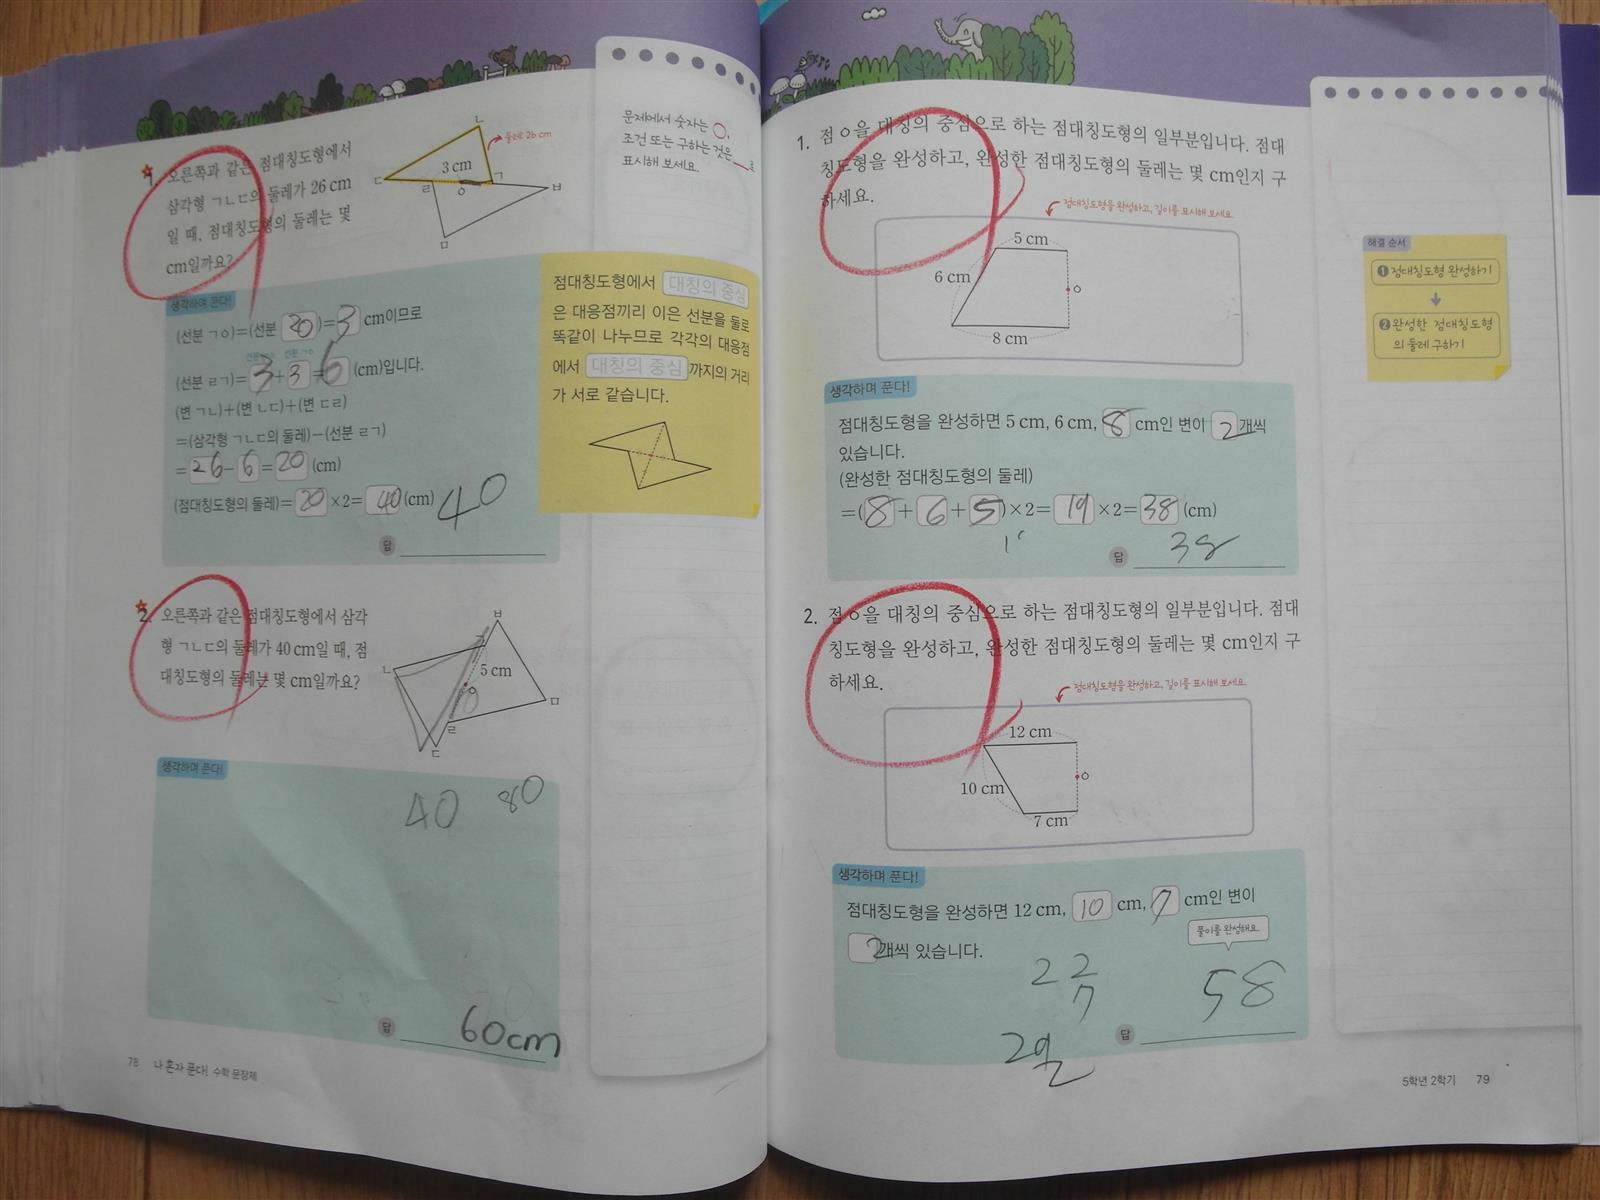 1. 오른쪽과 같은 점대칭도형에서
삼각형 ㄱㄴㄷ의 둘레가 26 cm
일 때, 점대칭도형의 둘레는 몇
cm일까요?
ㄴ
둘레: 26 cm
3 cm
ㄷ
ㄹ
ㅇ
ㄱ
ㅂ
ㅁ
문제에서 숫자는 ○,
조건 또는 구하는 것은 __로
표시해 보세요.
생각하며 푼다!
(선분 ㄱㅇ)=(선분 ㄹㅇ)=3 cm이므로
선분 ㄹㅇ 선분 ㄱㅇ
(선분 ㄹㄱ)=3+3=6 (cm)입니다.
(변 ㄱㄴ)+(변 ㄴㄷ)+(변 ㄷㄹ)
=(삼각형 ㄱㄴㄷ의 둘레)-(선분 ㄹㄱ)
=26-6=20 (cm)
(점대칭도형의 둘레)=20×2=40 (cm)
40
답
점대칭도형에서 대칭의 중심
은 대응점끼리 이은 선분을 둘로
똑같이 나누므로 각각의 대응점
에서 대칭의 중심 까지의 거리
가 서로 같습니다.
2. 오른쪽과 같은 점대칭도형에서 삼각
형 ㄱㄴㄷ의 둘레가 40 cm일 때, 점
대칭도형의 둘레는 몇 cm일까요?
ㅂ
ㄱ
ㄴ
5 cm
ㅇ
ㅁ
ㄹ
ㄷ
생각하며 푼다!
40 80
답 60cm
78 나 혼자 푼다! 수학 문장제
1. 점 ㅇ을 대칭의 중심으로 하는 점대칭도형의 일부분입니다. 점대
칭도형을 완성하고, 완성한 점대칭도형의 둘레는 몇 cm인지 구
하세요.
점대칭도형을 완성하고, 길이를 표시해 보세요.
5 cm
6 cm
ㅇ
8 cm
해결 순서
❶ 점대칭도형 완성하기
❷ 완성한 점대칭도형
의 둘레 구하기
생각하며 푼다!
점대칭도형을 완성하면 5 cm, 6 cm, 8 cm인 변이 2개씩
있습니다.
(완성한 점대칭도형의 둘레)
=(8+6+5)×2=19×2=38 (cm)
답 38
2. 점 ㅇ을 대칭의 중심으로 하는 점대칭도형의 일부분입니다. 점대
칭도형을 완성하고, 완성한 점대칭도형의 둘레는 몇 cm인지 구
하세요.
점대칭도형을 완성하고, 길이를 표시해 보세요.
12 cm
10 cm
ㅇ
7 cm
생각하며 푼다!
점대칭도형을 완성하면 12 cm, 10 cm, 7 cm인 변이
풀이를 완성해요.
2개씩 있습니다.
22
7
58
29
답
5학년 2학기 79